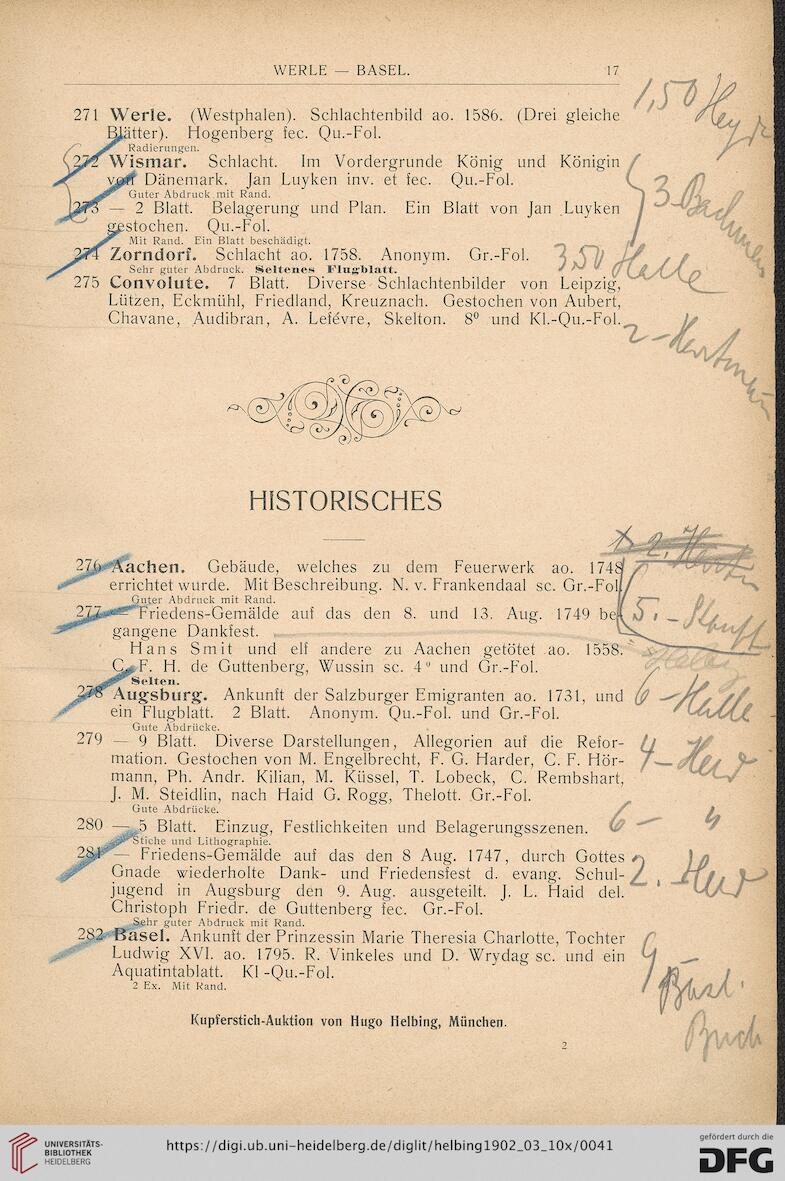 WERLE — BASEL. 17
271 Werle. (Westphalen). Schlachtenbild ao. 1586. (Drei gleiche
Blätter). Hogenberg fec. Qu.-Fol.
Radierungen.
1,50 Heyd
272 Wismar. Schlacht. Im Vordergrunde König und Königin
von Dänemark. Jan Luyken inv. et fec. Qu.-Fol.
Guter Abdruck mit Rand.
3
273 — 2 Blatt. Belagerung und Plan. Ein Blatt von Jan Luyken
gestochen. Qu.-Fol.
Mit Rand. Ein Blatt beschädigt.
274 Zorndorf. Schlacht ao. 1758. Anonym. Gr.-Fol. 3,50 Halle
Sehr guter Abdruck. Seltenes Flugblatt.
275 Convolute. 7 Blatt. Diverse Schlachtenbilder von Leipzig,
Lützen, Eckmühl, Friedland, Kreuznach. Gestochen von Aubert,
Chavane, Audibran, A. Lefévre, Skelton. 8⁰ und Kl.-Qu.-Fol.
2 –
HISTORISCHES
276 Aachen. Gebäude, welches zu dem Feuerwerk ao. 1748
errichtet wurde. Mit Beschreibung. N. v. Frankendaal sc. Gr.-Fol
Guter Abdruck mit Rand.
277 — Friedens-Gemälde auf das den 8. und 13. Aug. 1749 be-
gangene Dankfest.
5. –
Hans Smit und elf andere zu Aachen getötet ao. 1558.
C. F. H. de Guttenberg, Wussin sc. 4⁰ und Gr.-Fol.
Selten.
278 Augsburg. Ankunft der Salzburger Emigranten ao. 1731, und
ein Flugblatt. 2 Blatt. Anonym. Qu.-Fol. und Gr.-Fol.
Gute Abdrücke.
6 – Halle
279 — 9 Blatt. Diverse Darstellungen, Allegorien auf die Refor-
mation. Gestochen von M. Engelbrecht, F. G. Harder, C. F. Hör-
mann, Ph. Andr. Kilian, M. Küssel, T. Lobeck, C. Rembshart,
J. M. Steidlin, nach Haid G. Rogg, Thelott. Gr.-Fol.
Gute Abdrücke.
4 –
280 — 5 Blatt. Einzug, Festlichkeiten und Belagerungsszenen. 6 – "
Stiche und Lithographie.
281 — Friedens-Gemälde auf das den 8 Aug. 1747, durch Gottes
Gnade wiederholte Dank- und Friedensfest d. evang. Schul-
jugend in Augsburg den 9. Aug. ausgeteilt. J. L. Haid del.
Christoph Friedr. de Guttenberg fec. Gr.-Fol.
Sehr guter Abdruck mit Rand.
2. –
282 Basel. Ankunft der Prinzessin Marie Theresia Charlotte, Tochter
Ludwig XVI. ao. 1795. R. Vinkeles und D. Wrydag sc. und ein
Aquatintablatt. Kl -Qu.-Fol.
2 Ex. Mit Rand.
9 –
Basl.
Buch
Kupferstich-Auktion von Hugo Helbing, München.
2
UNIVERSITÄTS-
BIBLIOTHEK
HEIDELBERG
https://digi.ub.uni-heidelberg.de/diglit/helbing1902_03_10x/0041
gefördert durch die
DFG